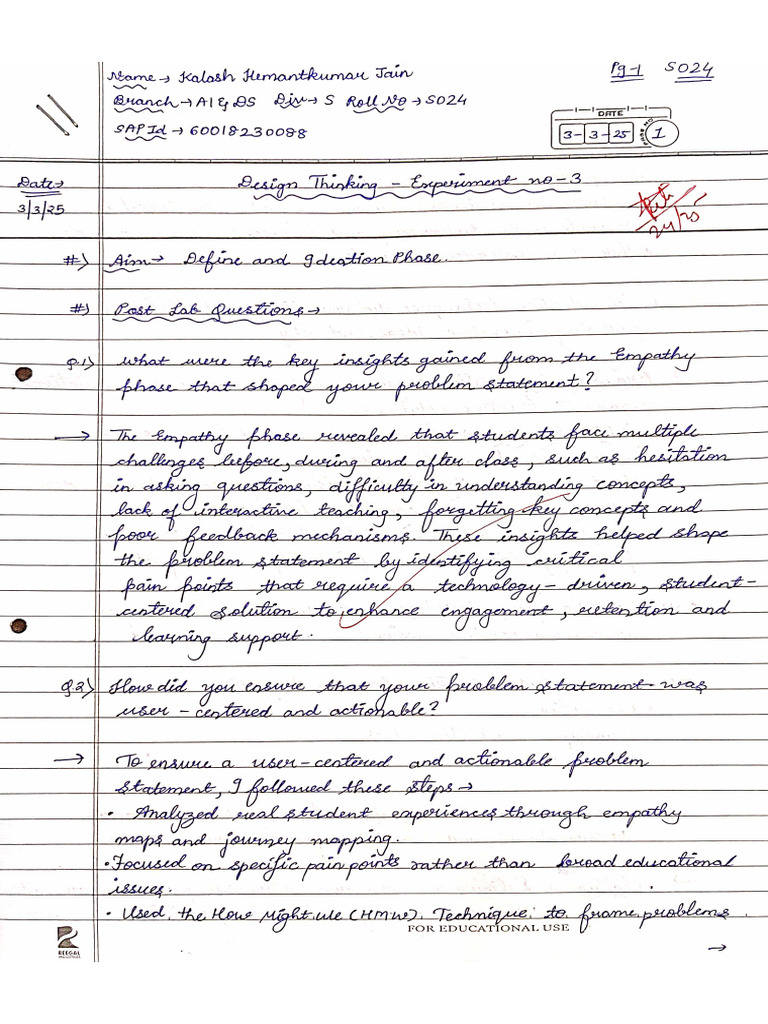 Name → Kalash Hemantkumar Jain
Pg-1 S024
Branch → AI & DS Div → S Roll No → S024
SAP Id → 60018230088
DATE
3-3-25
1
Date →
3/3/25
Design Thinking - Experiment no-3
24/25
#) Aim → Define and Ideation Phase.
#) Post Lab Questions →
Q.1) What were the key insights gained from the Empathy
phase that shaped your problem statement?
→ The Empathy phase revealed that students face multiple
challenges before, during and after class, such as hesitation
in asking questions, difficulty in understanding concepts,
lack of interactive teaching, forgetting key concepts and
poor feedback mechanisms. These insights helped shape
the problem statement by identifying critical
pain points that require a technology-driven, student-
centered solution to enhance engagement, retention and
learning support.
Q.2) How did you ensure that your problem statement was
user-centered and actionable?
→ To ensure a user-centered and actionable problem
statement, I followed these steps →
• Analyzed real student experiences through empathy
maps and journey mapping.
• Focused on specific pain points rather than broad educational
issues.
• Used the How Might We (HMW) Technique to frame problems
FOR EDUCATIONAL USE
→
REEGAL